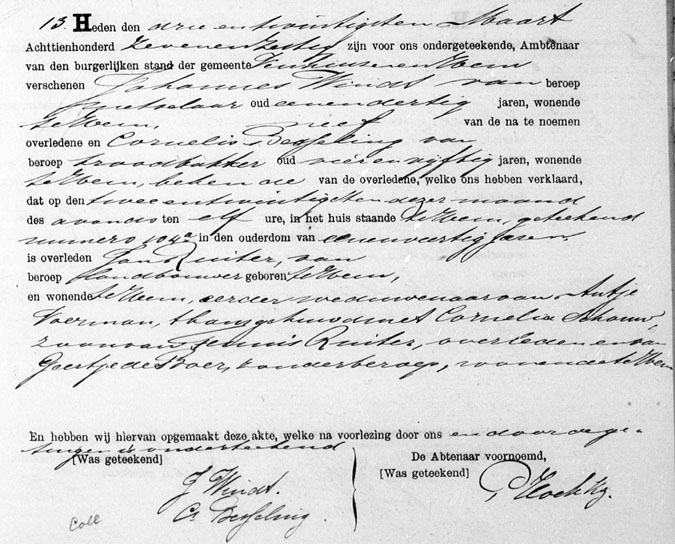 13. Heden den drie en twintigsten Maart
Achttienhonderd zevenenzestig zijn voor ons ondergeteekende, Ambtenaar
van den burgerlijken stand der gemeente Venhuizen en Hem
verschenen Johannes Windt van beroep
oud eenendertig jaren, wonende
te Hem, neef van de na te noemen
overledene en Cornelis Besseling van
beroep broodbakker oud vijftig jaren, wonende
te Hem, bekende van de overledene, welke ons hebben verklaard,
dat op den twee entwintigsten dezer maand
des avonds ten elf ure, in het huis staande te Hem, geteekend
numero 104a in den ouderdom van eenenveertig jaren
is overleden Jan Ruiter, van
beroep landbouwer geboren te Hem,
en wonende te Hem, eerder weduwenaar van Antje
Voerman, thans gehuwd met Cornelia Schouw,
zoon van Teunis Ruiter, overleden en van
Geertje de Boer, zonder beroep, wonende te Hem
En hebben wij hiervan opgemaakt deze akte, welke na voorlezing door ons en door de ge-
tuigen is onderteekend
[Was geteekend]
De Abtenaar voornoemd,
[Was geteekend]
J Windt.
Cs Besseling.
P Hoek Kz.
Coll